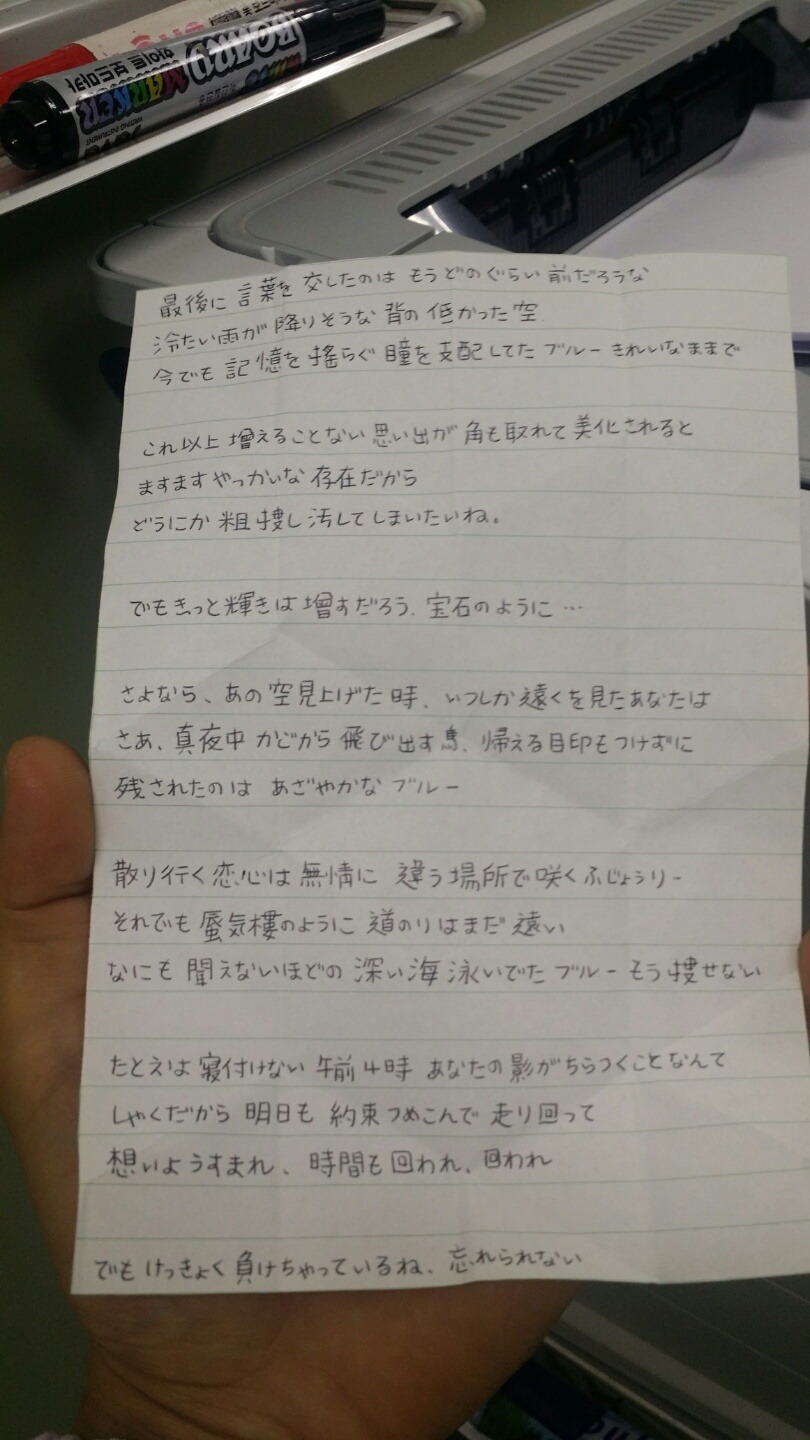 BOARD MARKER
화이트 보드마카
WRITING INSTRUMENT
最後に 言葉を 交したのは もうどのぐらい 前だろうな
冷たい雨が 降りそうな 背の 低かった 空
今でも 記憶を 揺らぐ 瞳を 支配してた ブルー きれいなままで
これ以上 増えることない 思い出が 角も取れて 美化されると
ますますやっかいな 存在だから
どうにか 粗 捜し 汚してしまいたいね。
でもきっと 輝きは 増すだろう、宝石のように…
さよなら、あの 空見上げた 時、いつしか 遠くを 見たあなたは
さあ、真夜中 かごから 飛び出す 鳥、帰える 目印もつけずに
残されたのは あざやかな ブルー
散り行く 恋心は 無情に 違う 場所で 咲く ふじょうりー
それでも 蜃気楼のように 道のりはまだ 遠い
なにも 聞えないほどの 深い 海 泳いでた ブルー もう 捜せない
たとえは 寝付けない 午前 4時 あなたの 影がちらつくことなんて
しゃくだから 明日も 約束つめこんで 走り回って
想いようすまれ、時間も 回われ、回われ
でも けっきょく 負けちゃっているね、忘れられない